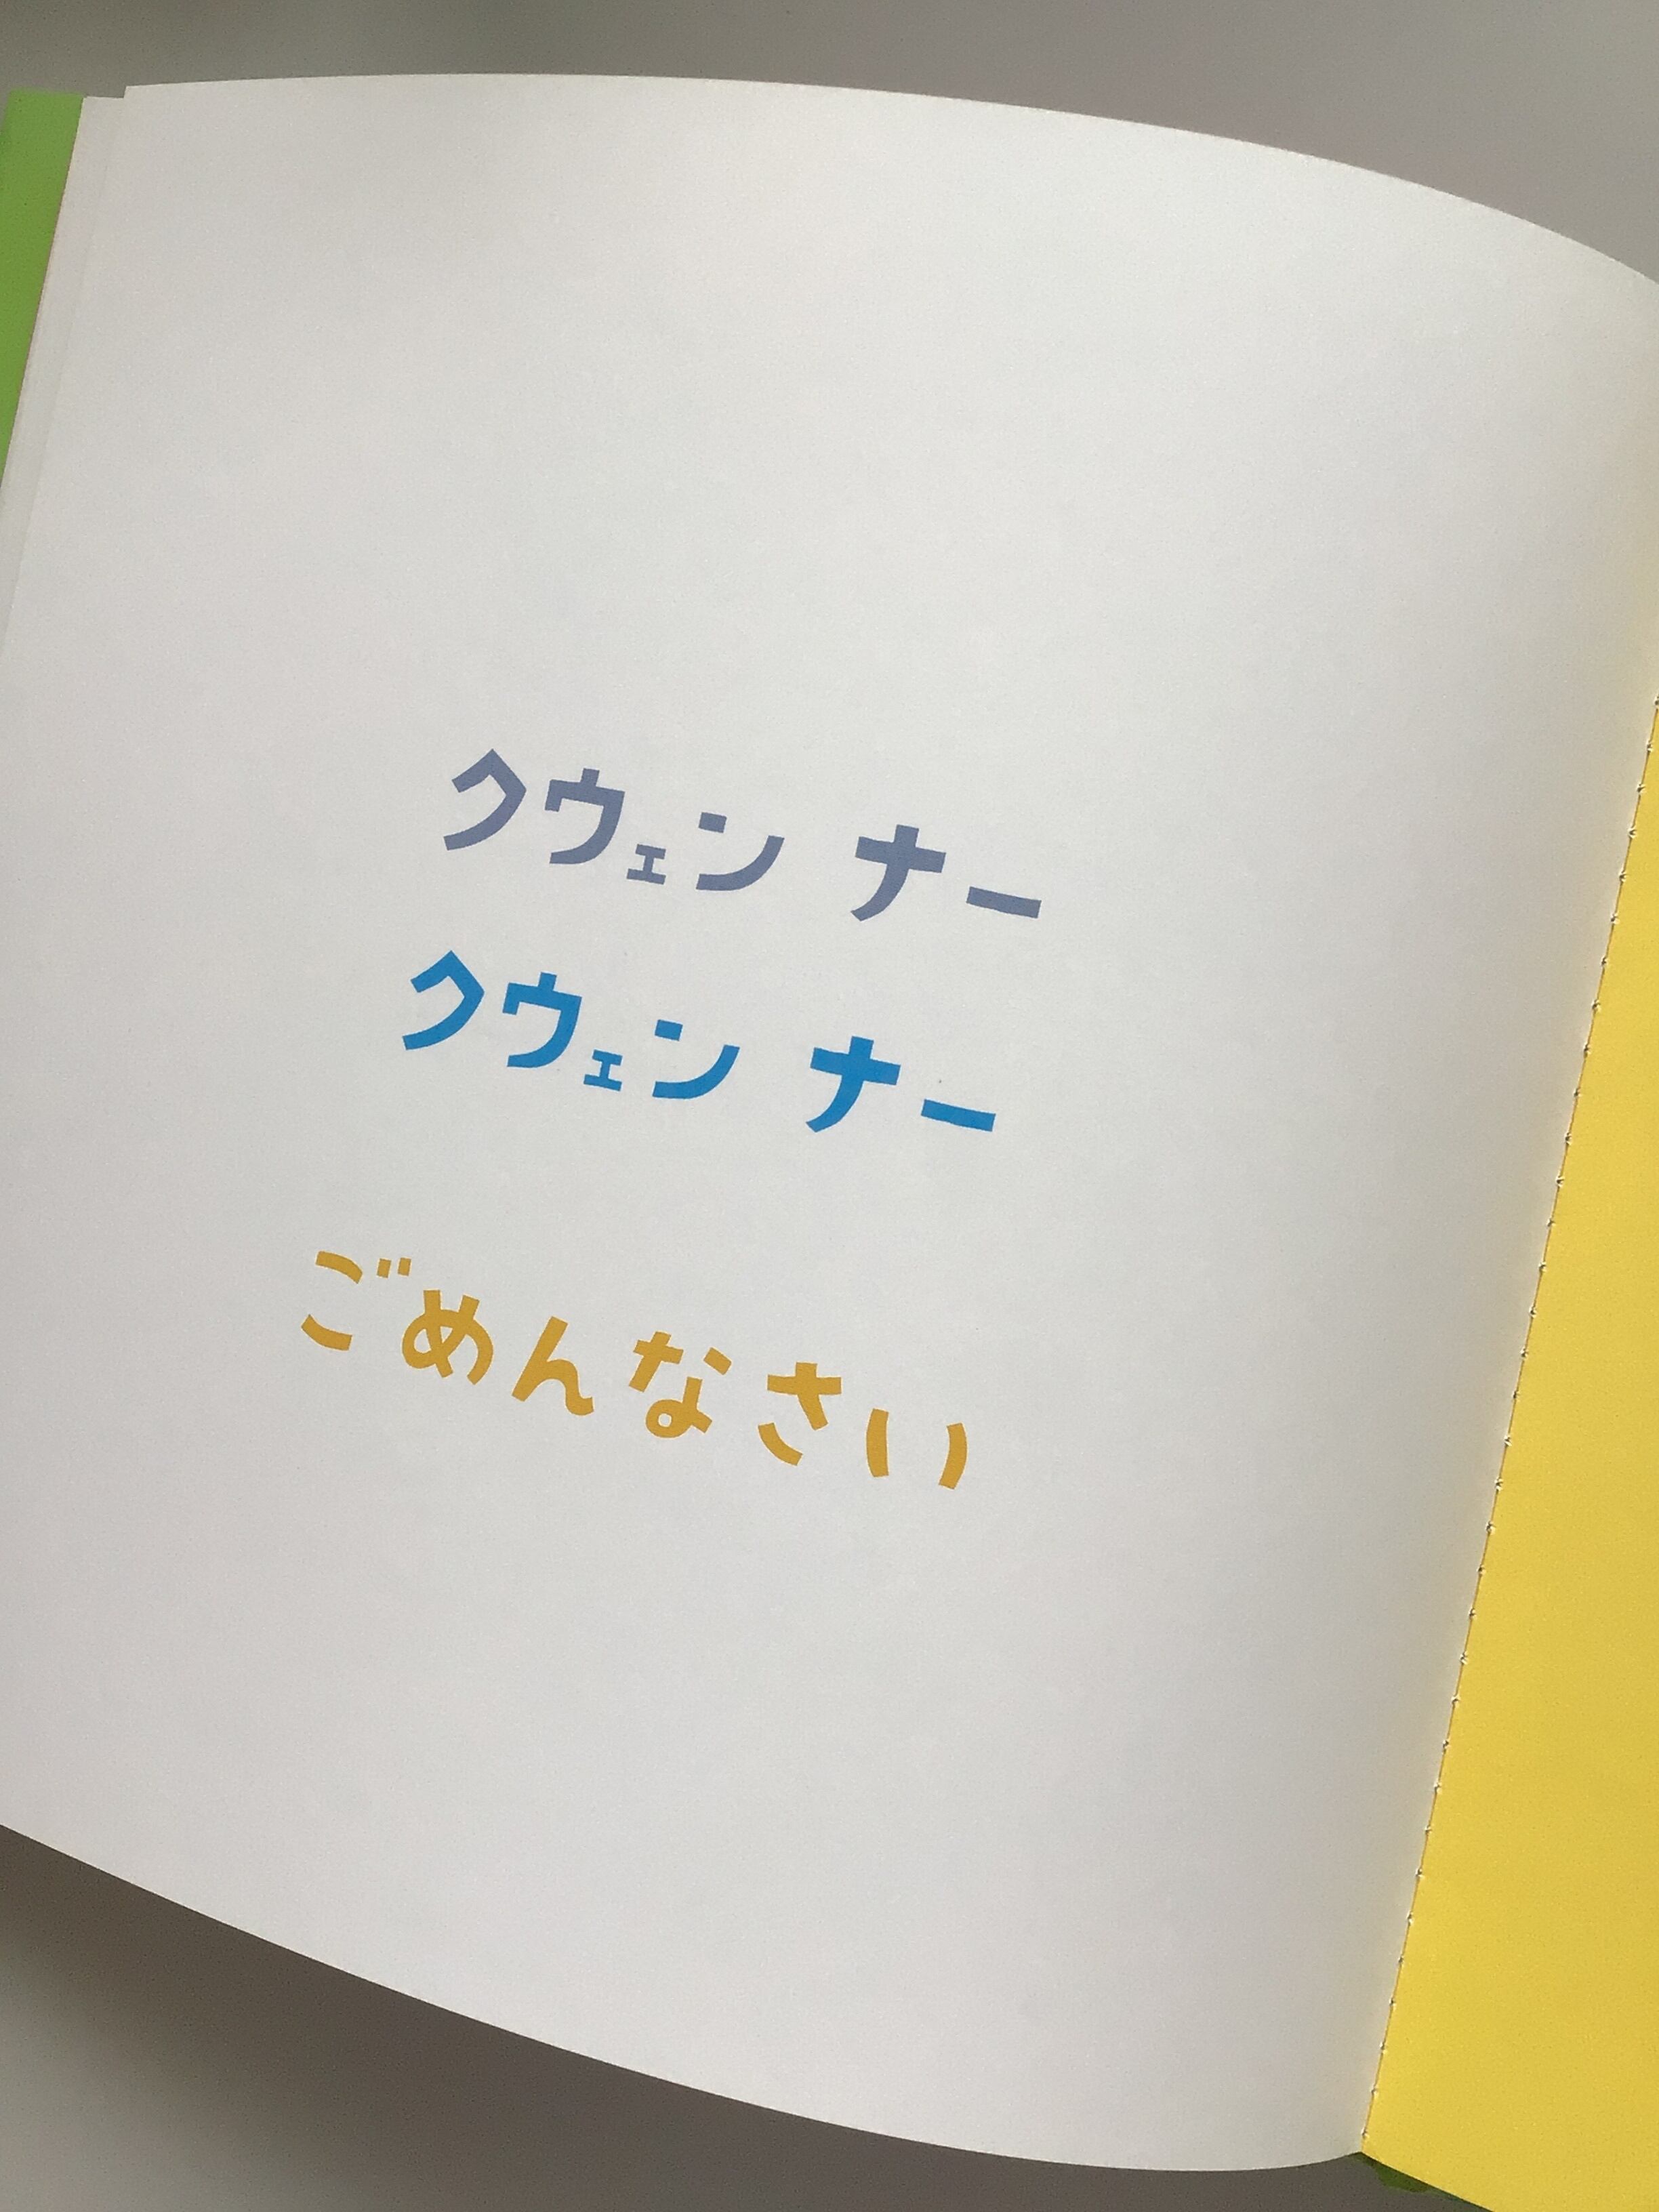 クウェン ナー
クウェン ナー
ごめんなさい